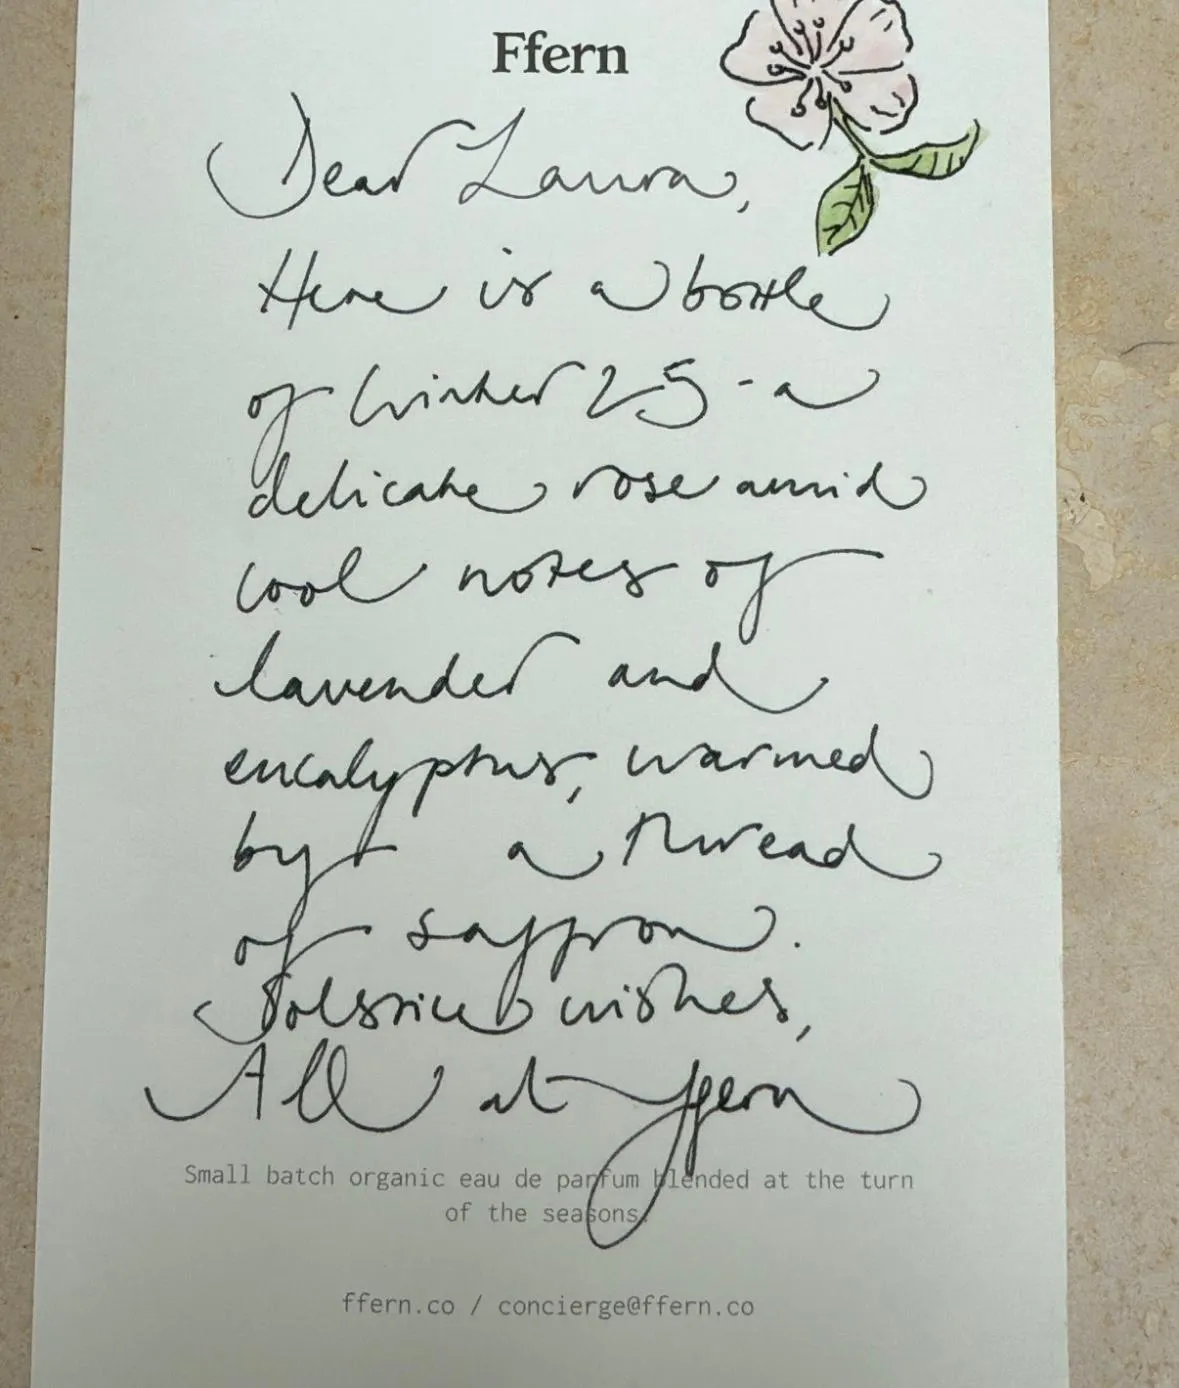 Ffern
Dear Laura,
Here is a bottle
of Winter 25 - a
delicate rose amid
cool notes of
lavender and
eucalyptus, warmed
by a thread
of saffron.
Solstice wishes,
All at ffern
Small batch organic eau de parfum blended at the turn
of the seasons.
ffern.co / concierge@ffern.co